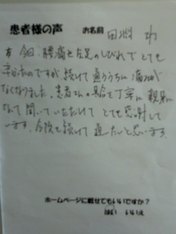 患者様の声 お名前 田渕
今回、腰痛と左足のしびれで とても
辛かったのですが 続けて通ううちに 痛みが
なくなりました。患者さんの 話も 丁寧に 親身に
なって聞いていただけて とても感謝して
います。今後も続けて 通いたいと思います
ホームページに載せてもいいですか？
はい いいえ